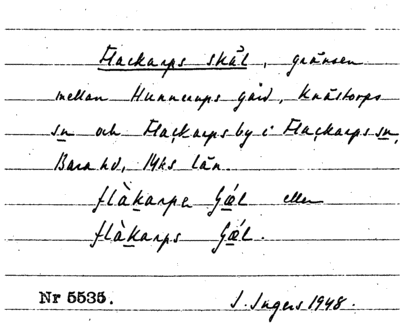 Flackarps skäl, gränsen
mellan Hunnerups gård, Knästorps
sn och Flackarps by i Flackarps sn,
Bara hd, Mhs län.
flàkarpa ʃǽl eller
flàkarps ʃǽl.
Nr 5535. I. Ingers 1948.